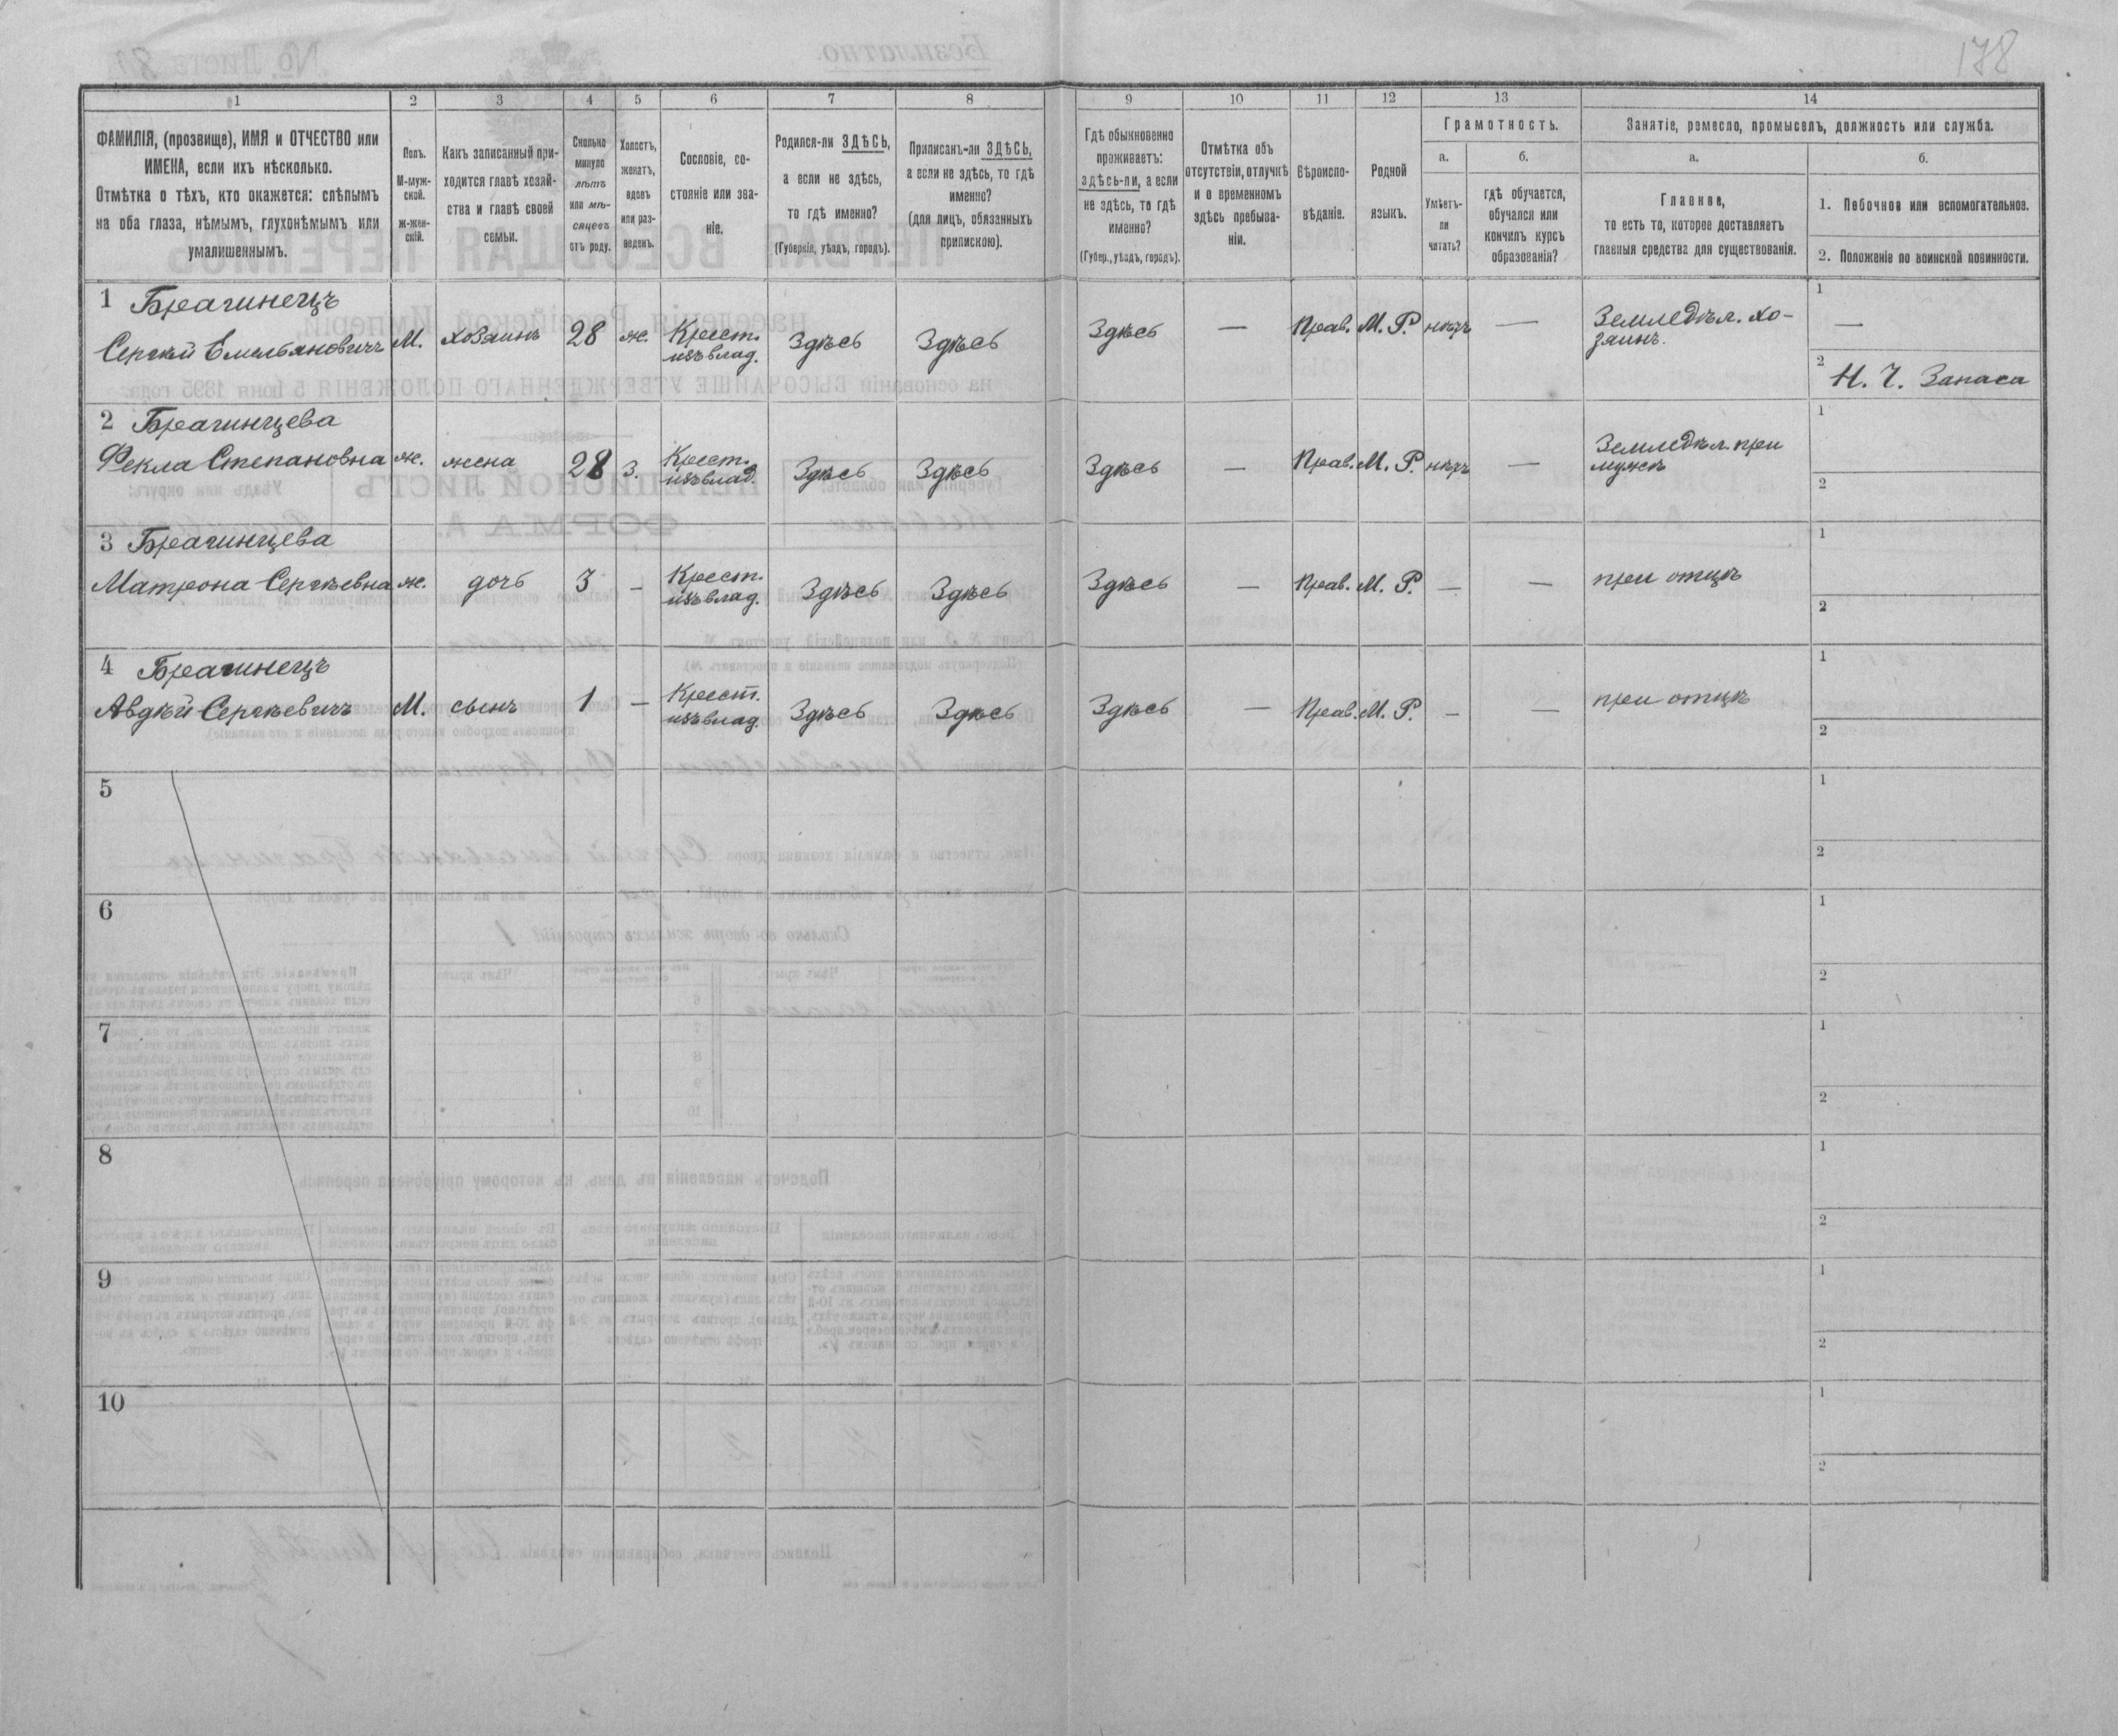 178
1
2
3
4
5
6
7
8
9
10
11
12
13
14
ФАМИЛІЯ, (прозвище), ИМЯ и ОТЧЕСТВО или
ИМЕНА, если ихъ нѣсколько.
Отмѣтка о тѣхъ, кто окажется: слѣпымъ
на оба глаза, нѣмымъ, глухонѣмымъ или
умалишеннымъ.
Полъ.
М-муж-
ской.
ж-жен-
скій.
Какъ записанный при-
ходится главѣ хозяй-
ства и главѣ своей
семьи.
Сколько
минуло
лѣтъ
или мѣ-
сяцевъ
отъ роду.
Холостъ,
женатъ,
вдовъ
или раз-
веденъ.
Сословіе, со-
стояніе или зва-
ніе.
Родился-ли ЗДѢСЬ,
а если не здѣсь,
то гдѣ именно?
(Губернія, уѣздъ, городъ).
Приписанъ-ли ЗДѢСЬ,
а если не здѣсь, то гдѣ
именно?
(для лицъ, обязанныхъ
припискою).
Гдѣ обыкновенно
проживаетъ:
здѣсь-ли, а если
не здѣсь, то гдѣ
именно?
(Губер., уѣздъ, городъ).
Отмѣтка объ
отсутствіи, отлучкѣ
и о временномъ
здѣсь пребыва-
ніи.
Вѣроиспо-
вѣданіе.
Родной
языкъ.
Грамотность.
а.
Умѣетъ-
ли
читать?
б.
гдѣ обучается,
обучался или
кончилъ курсъ
образованія?
Занятіе, ремесло, промыселъ, должность или служба.
а.
Главное,
то есть то, которое доставляетъ
главныя средства для существованія.
б.
1. Побочное или вспомогательное.
2. Положеніе по воинской повинности.
1 Брагинецъ
Сергѣй Емельяновичъ М. хозяинъ 28 ж. Крест. изъ влад. Здѣсь Здѣсь Здѣсь — Прав. М. Р. нѣтъ — Земледѣл. хо-
зяинъ.
1 —
2 Н. Ч. Запаса
2 Брагинцева
Фекла Степановна ж. жена 28 з. Крест. изъ влад. Здѣсь Здѣсь Здѣсь — Прав. М. Р. нѣтъ — Земледѣл. при
мужѣ
1
2
3 Брагинцева
Матрона Сергѣевна ж. дочь 3 — Крест. изъ влад. Здѣсь Здѣсь Здѣсь — Прав. М. Р. — — при отцѣ
1
2
4 Брагинецъ
Авдѣй Сергѣевичъ М. сынъ 1 — Крест. изъ влад. Здѣсь Здѣсь Здѣсь — Прав. М. Р. — — при отцѣ
1
2
5
1
2
6
1
2
7
1
2
8
1
2
9
1
2
10
1
2